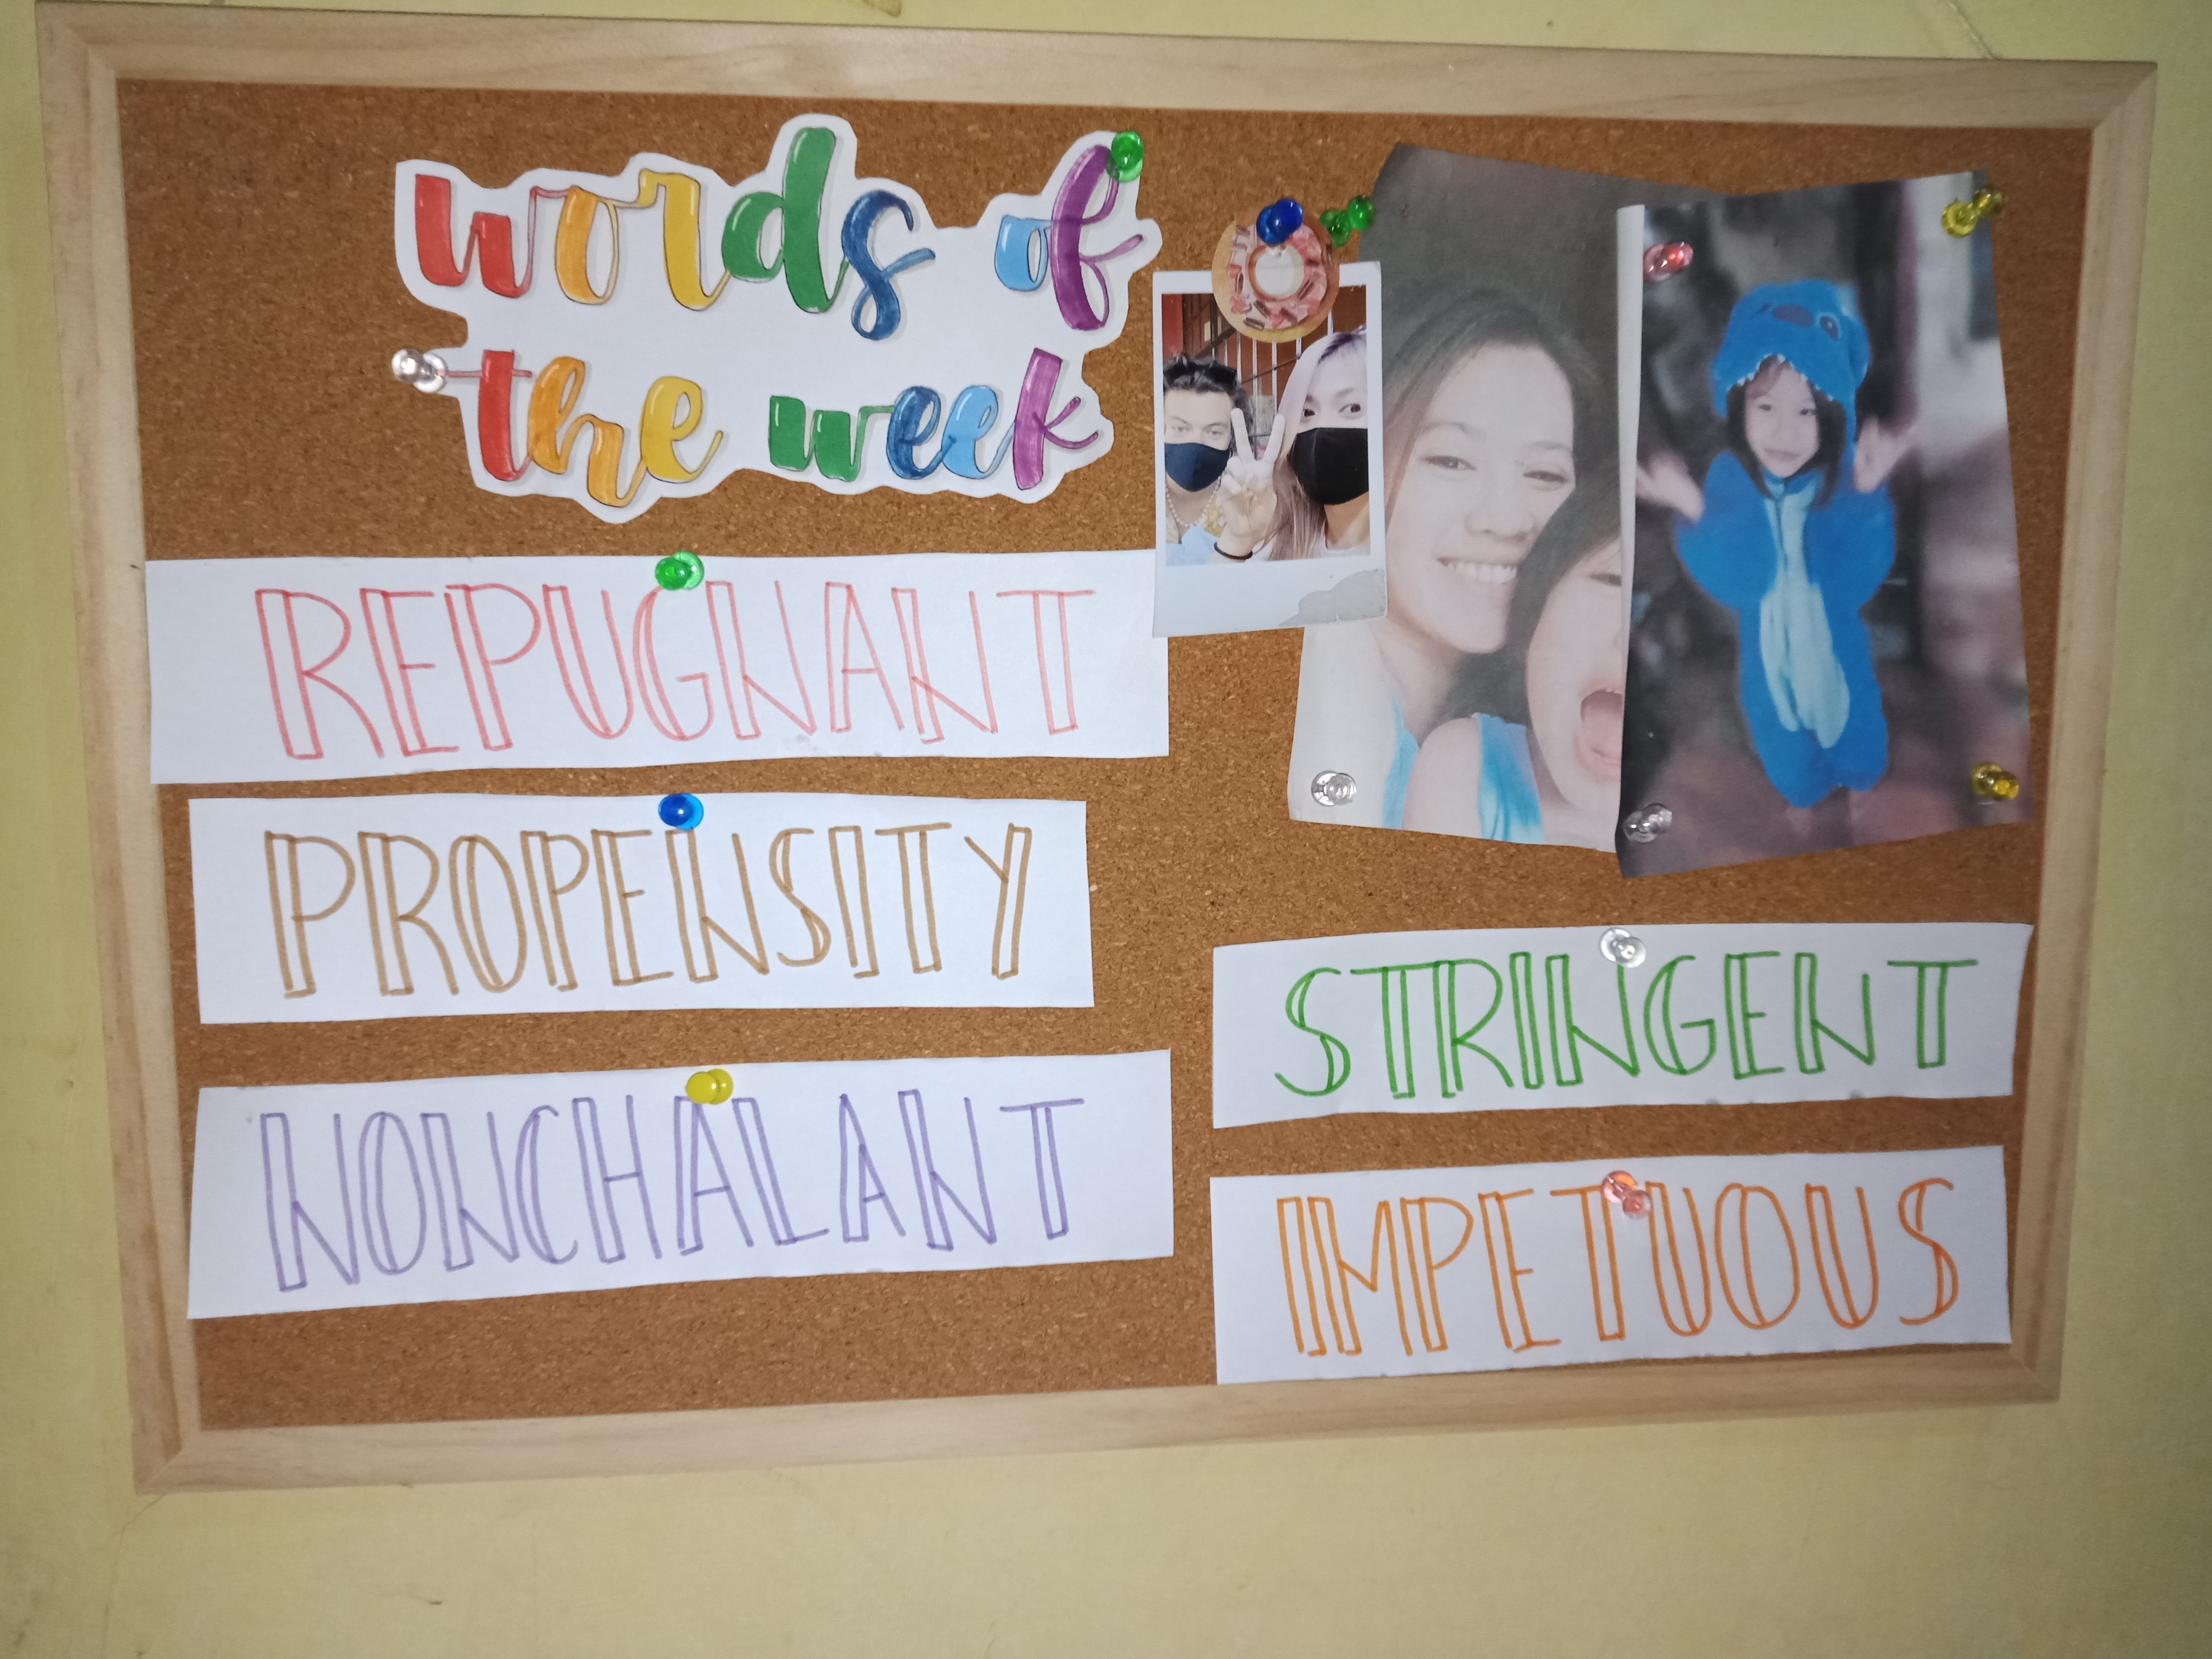 words of
the week
REPUGNANT
PROPENSITY
NONCHALANT
STRINGENT
IMPETUOUS